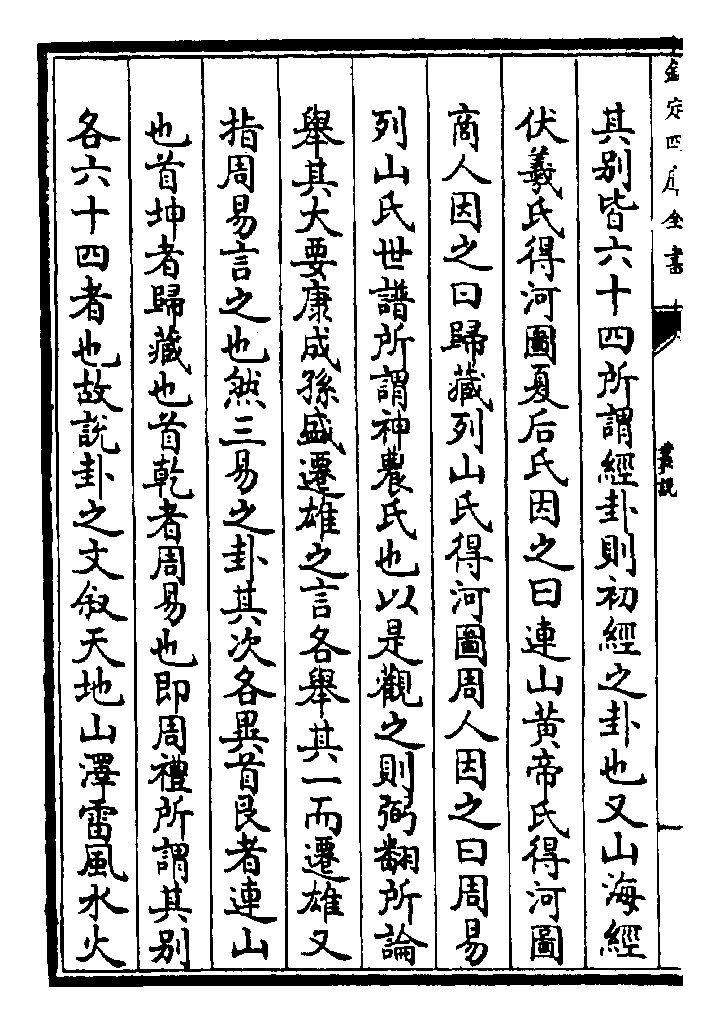 欽定四庫全書
叢說
其别皆六十四所謂經卦則初經之卦也又山海經
伏羲氏得河圖夏后氏因之曰連山黄帝氏得河圖
商人因之曰歸藏列山氏得河圖周人因之曰周易
列山氏世譜所謂神農氏也以是觀之則弼翻所論
舉其大要康成孫盛遷雄之言各舉其一而遷雄又
指周易言之也然三易之卦其次各異首艮者連山
也首坤者歸藏也首乾者周易也即周禮所謂其别
各六十四者也故説卦之文叙天地山澤雷風水火